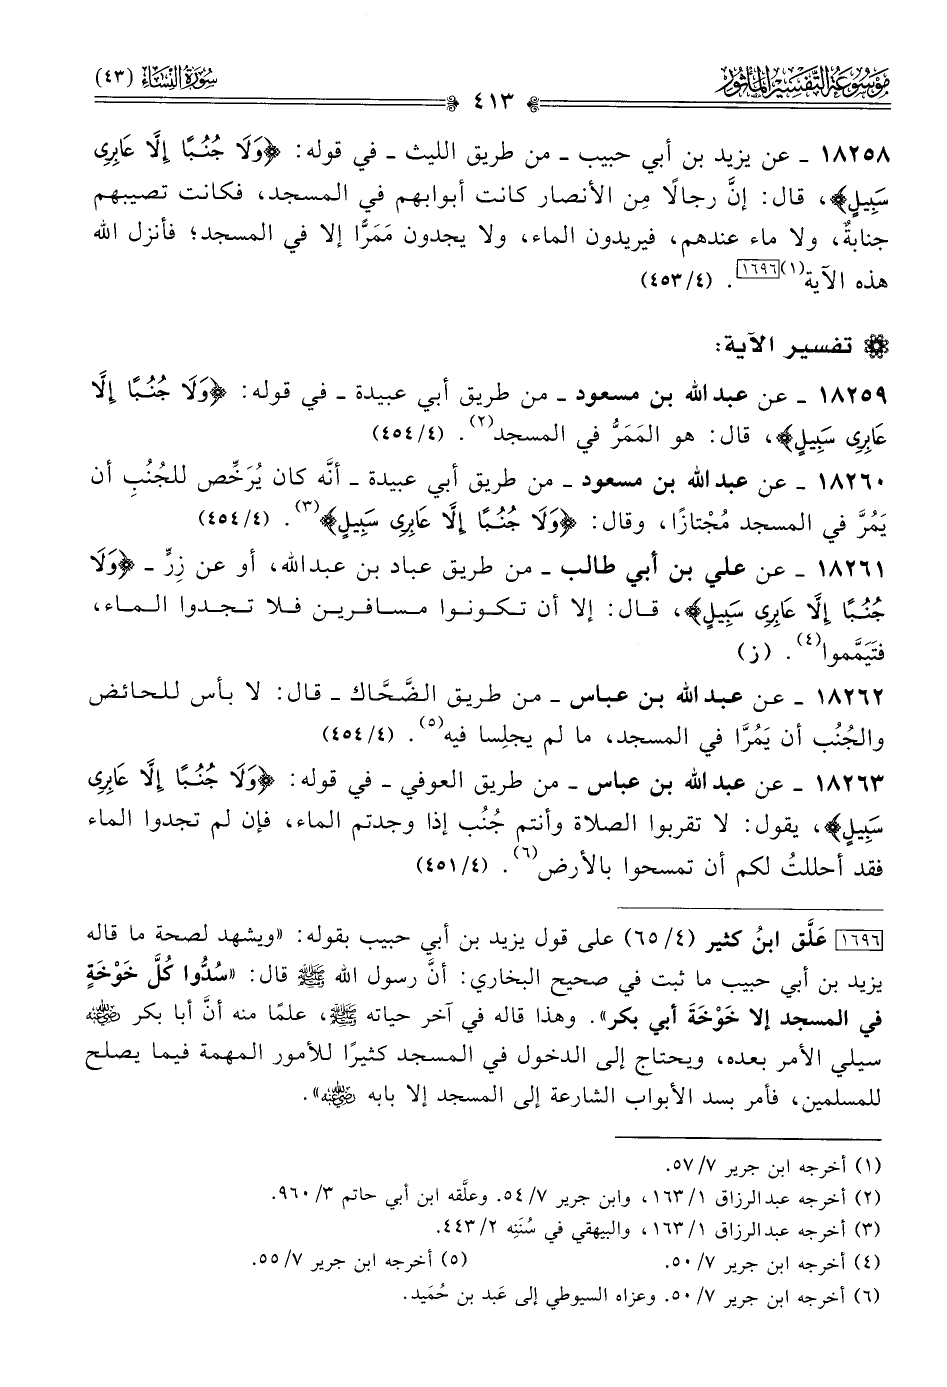 مَوْسُوعَة التَّفْسِيرِ المَأْثُور
سُورَةُ النِّسَاء (٤٣)
٤١٣
١٨٢٥٨ - عن يزيد بن أبي حبيب - من طريق الليث - في قوله: ﴿وَلَا جُنُبًا إِلَّا عَابِرِى
سَبِيلٍ﴾، قال: إنَّ رجالًا مِن الأنصار كانت أبوابهم في المسجد، فكانت تصيبهم
جنابةٌ، ولا ماء عندهم، فيريدون الماء، ولا يجدون مَمَرًّا إلا في المسجد؛ فأنزل الله
هذه الآية(١)[١٦٩٦]. (٤٥٣/٤)
تفسير الآية:
١٨٢٥٩ - عن عبد الله بن مسعود - من طريق أبي عبيدة - في قوله: ﴿وَلَا جُنُبًا إِلَّا
عَابِرِى سَبِيلٍ﴾، قال: هو المَمَرُّ في المسجد(٢). (٤٥٤/٤)
١٨٢٦٠ - عن عبد الله بن مسعود - من طريق أبي عبيدة - أنَّه كان يُرَخِّص للجُنُبِ أن
يَمُرَّ في المسجد مُجْتازًا، وقال: ﴿وَلَا جُنُبًا إِلَّا عَابِرِى سَبِيلٍ﴾(٣). (٤٥٤/٤)
١٨٢٦١ - عن علي بن أبي طالب - من طريق عباد بن عبد الله، أو عن زِرٍّ - ﴿وَلَا
جُنُبًا إِلَّا عَابِرِى سَبِيلٍ﴾، قال: إلا أن تكونوا مسافرين فلا تجدوا الماء،
فتَيَمَّموا(٤). (ز)
١٨٢٦٢ - عن عبد الله بن عباس - من طريق الضَّحَّاك - قال: لا بأس للحائض
والجُنُب أن يَمُرَّا في المسجد، ما لم يجلِسا فيه(٥). (٤٥٤/٤)
١٨٢٦٣ - عن عبد الله بن عباس - من طريق العوفي - في قوله: ﴿وَلَا جُنُبًا إِلَّا عَابِرِى
سَبِيلٍ﴾، يقول: لا تقربوا الصلاة وأنتم جُنُب إذا وجدتم الماء، فإن لم تجدوا الماء
فقد أحللتُ لكم أن تمسحوا بالأرض(٦). (٤٥١/٤)
[١٦٩٦] عَلَّق ابنُ كثير (٦٥/٤) على قول يزيد بن أبي حبيب بقوله: «ويشهد لصحة ما قاله
يزيد بن أبي حبيب ما ثبت في صحيح البخاري: أنَّ رسول الله ﷺ قال: «سُدُّوا كُلَّ خَوْخَةٍ
في المسجد إلا خَوْخَةَ أبي بكر». وهذا قاله في آخر حياته ﷺ، علمًا منه أنَّ أبا بكر رضي الله عنه
سيلي الأمر بعده، ويحتاج إلى الدخول في المسجد كثيرًا للأمور المهمة فيما يصلح
للمسلمين، فأمر بسد الأبواب الشارعة إلى المسجد إلا بابه رضي الله عنه».
(١) أخرجه ابن جرير ٥٧/٧.
(٢) أخرجه عبدالرزاق ١٦٣/١، وابن جرير ٥٤/٧. وعلَّقه ابن أبي حاتم ٩٦٠/٣.
(٣) أخرجه عبدالرزاق ١٦٣/١، والبيهقي في سُنَنِه ٤٤٣/٢.
(٤) أخرجه ابن جرير ٥٠/٧. (٥) أخرجه ابن جرير ٥٥/٧.
(٦) أخرجه ابن جرير ٥٠/٧. وعزاه السيوطي إلى عَبد بن حُمَيد.